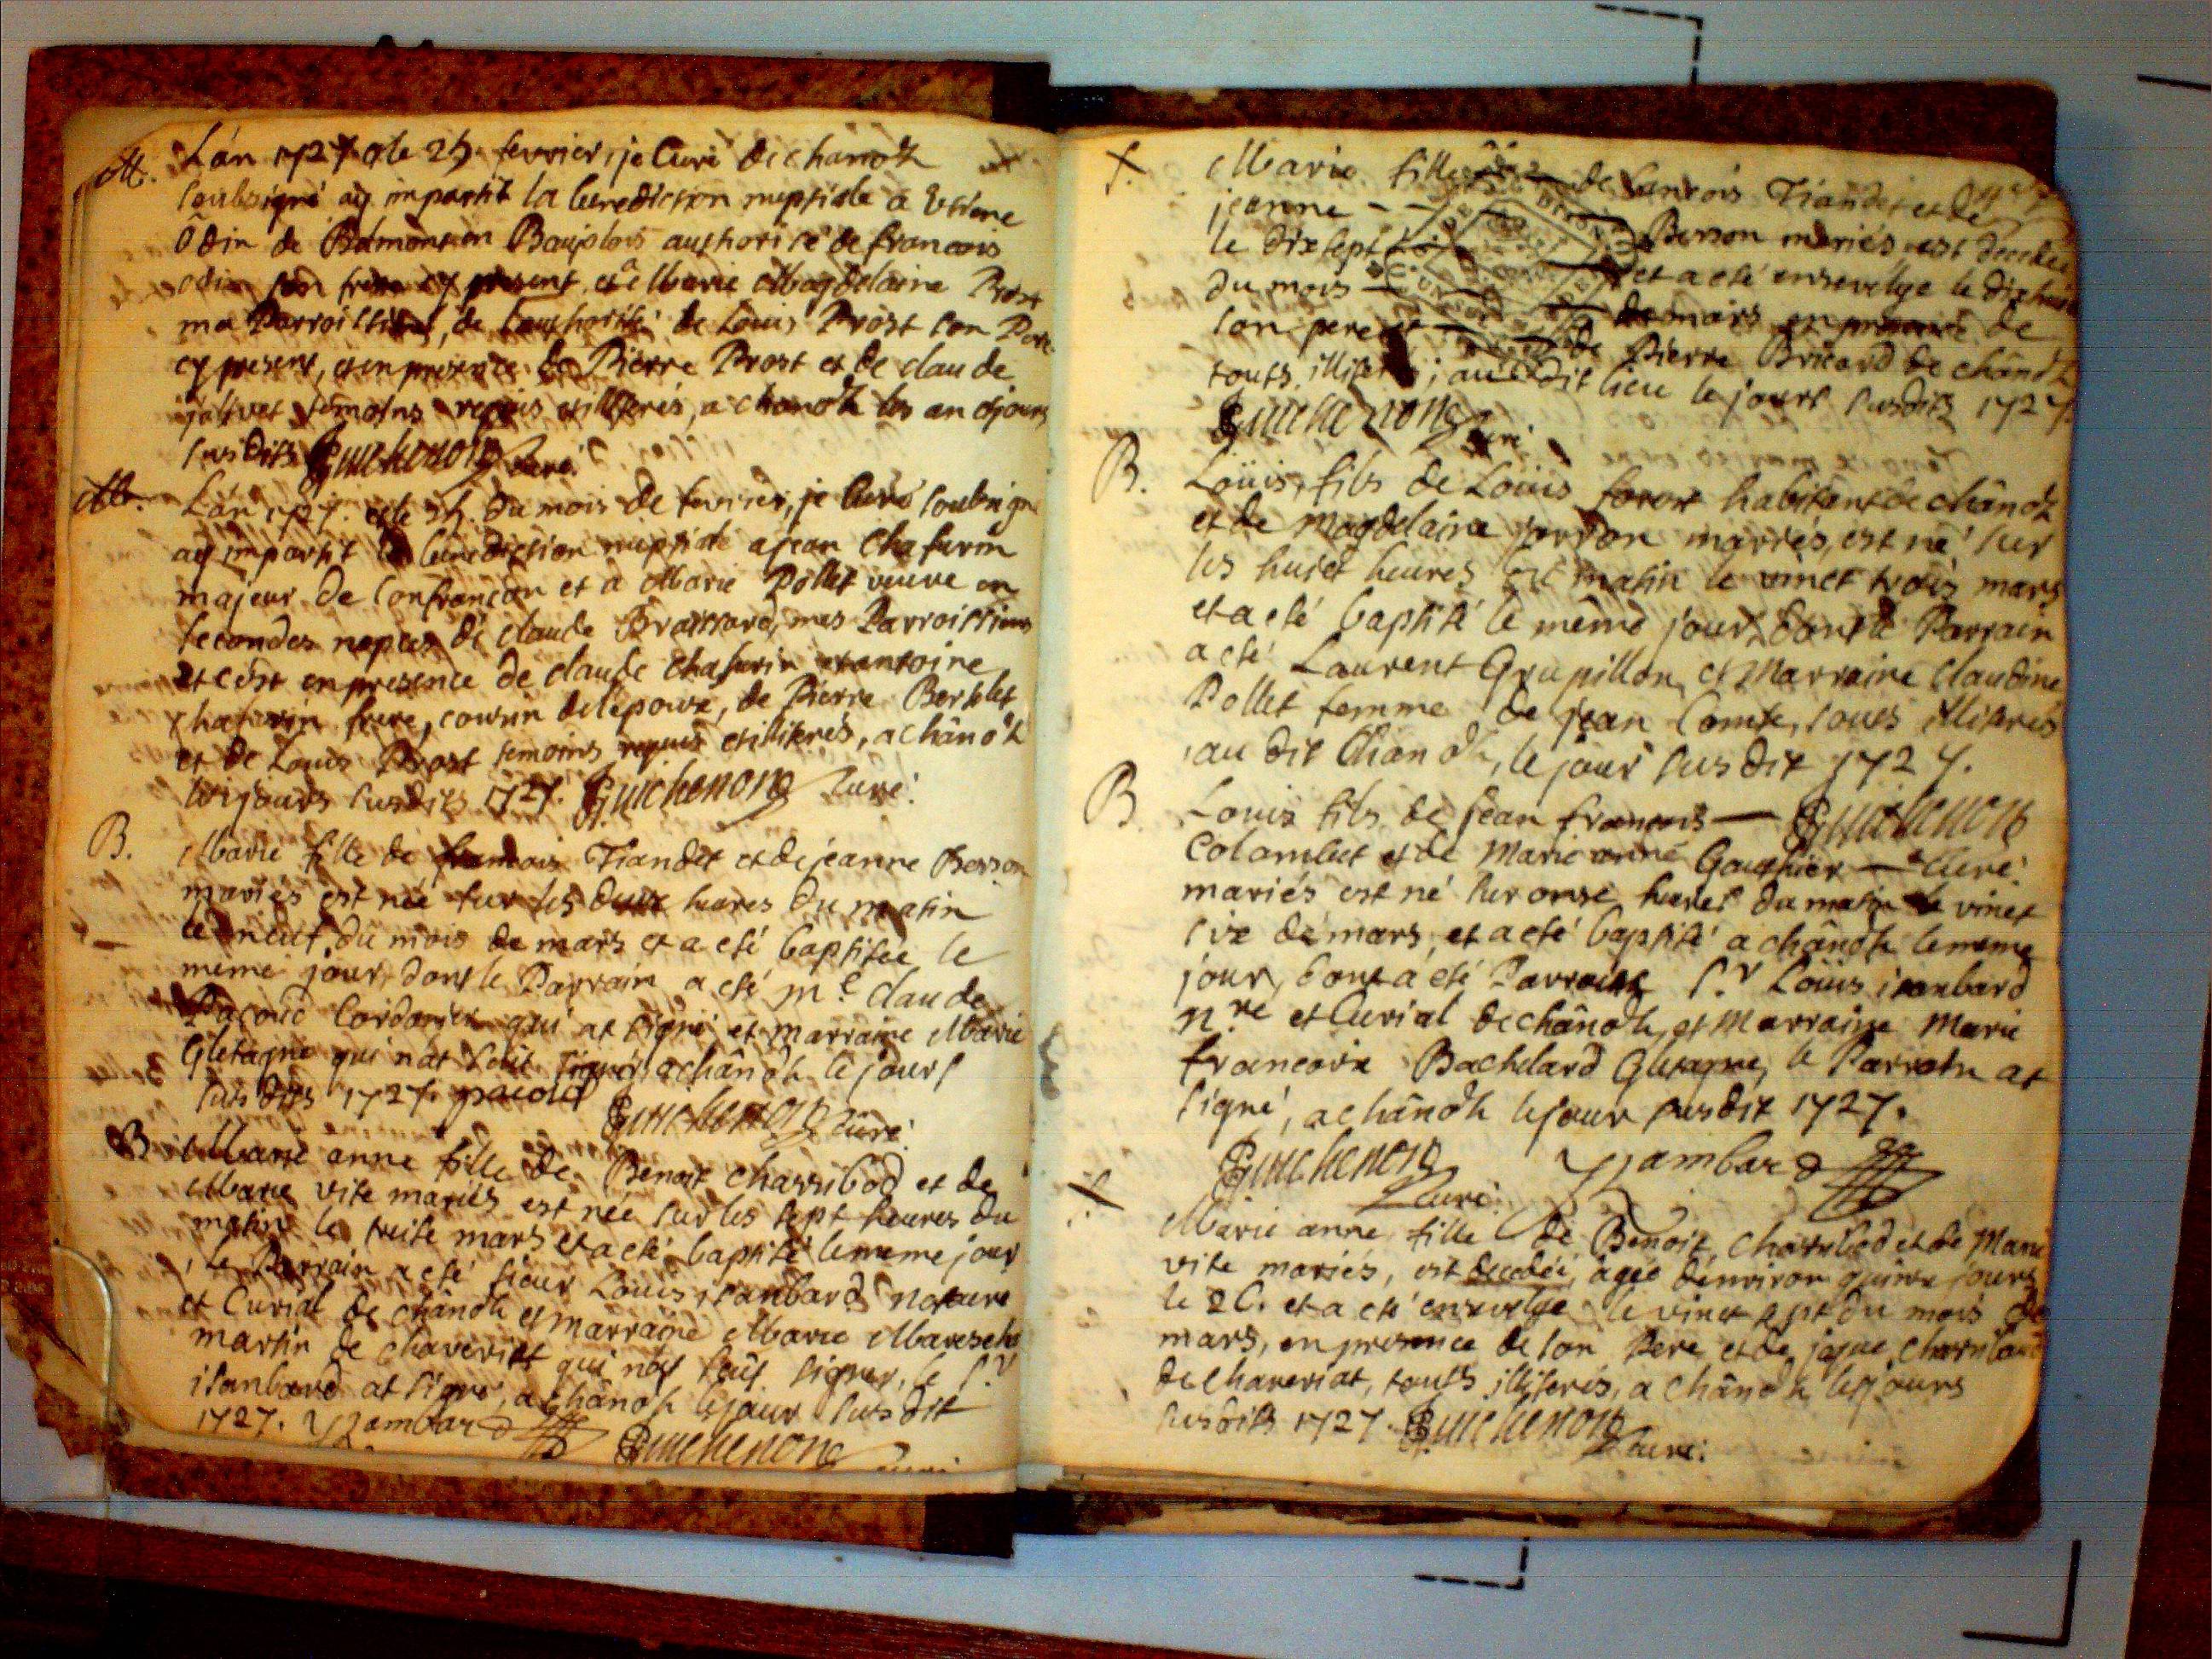 M. L'an 1727 et le 25 fevrier, je Curé de chanoz
soubsigné ay impartit la benediction nuptiale a Etiene
Odin de Bâmont en Baujolois authorisé de francois
odin son frere cy present, et a Marie Magdelaine Prost
ma Parroissiene, de l'authorité de Louis Prost son Pere
cy present, et en presence de Pierre Prost et de claude
temoins requis et illiterés, a chanoz les an et jours
susdits Guichenon Curé.
M. L'an 1727. et le 25. du mois de fevrier, je Curé soubsigné
ay impartit la benediction nuptiale a jean Chafurin
majeur de Confrançon et a Marie Pollet veuve en
secondes nopces de claude Braissard, mes Parroissiens
et c'est en presence de claude chafurin et antoine
chafurin frere, cousin de l'epoux, de Pierre Berthlet
et de Louis Prost temoins requis et illiterés, a chânoz
les jours susdits 1727. Guichenon Curé.
B. Marie fille de francois Tiandet et de jeanne Besson
mariés est née sur les deux heures du matin
le neuf du mois de mars et a eté baptisée le
même jour, dont le Parrain a eté m.e claude
Pacoud Cordonier qui at signé et marraine Marie
Gletagne qui n'at sceut signer, a chânoz le jours
susdits 1727. pacoud
Guichenon Curé.
B Marie anne fille de Benoit charribod et de
Marie vite mariés est née sur les sept heures du
matin le treise mars et a eté baptisé le meme jour
, le Parrain a eté sieur Louis isanbard notaire
et Curial de chânoz et marraine Marie
martin de chaveriat qui n'at sceut signer, le S.r
isanbard at signé, a chânoz le jour susdit
1727. Yzambard Guichenon Curé
f. Marie fille de francois Tiandet et de
jeanne Besson mariés, est decedée
le dixsept et a eté ensevelye le dixhuit
du mois de mars en presence de
son pere et de Pierre Bricard de chânoz
touts illiterés; au dit lieu le jours susdits 1727.
Guichenon Curé
B. Loüis, fils de Loüis forest habitant de chânoz
et de Magdelaine jordon mariés, est né sur
les huict heures du matin le vinct trois mars
et a eté baptisé le même jour, dont le Parrain
a eté Laurent Grupillon, et Marraine Claudine
Pollet femme de jean Comte, tous illiterés
au dit Chanoz, le jour susdit 1727.
B. Louis fils de jean francois — Guichenon
Colombet et de Marie anne Gauthier — Curé.
mariés est né sur onse heures du matin le vinct
six de mars, et a eté baptisé a chânoz le meme
jour, dont a eté Parrain S.r Loüis isanbard
n.re et Curial de chânoz, et Marraine Marie
francoise Bachelard Gletagne, le Parrain at
signé, a chânoz le jour susdit 1727.
Guichenon Curé. Yzambard
f. Marie anne, fille de Benoit, charribod et de Marie
vite mariés, est decedée, agée d'environ quinse jours
le 26. et a eté ensevelye le vinct sept du mois de
mars, en presence de son Pere, et de jaque charribod
de chaveriat, touts illiterés, a chânoz les jours
susdits 1727. Guichenon Curé.